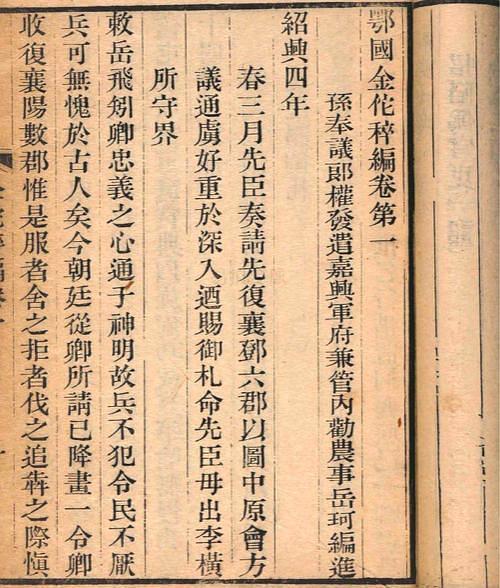 鄂國金佗稡編卷第一
孫奉議郞權發遣嘉興軍府兼管內勸農事岳珂編進
紹興四年
春三月先臣奏請先復襄鄧六郡以圖中原會方
議通虜好重於深入迺賜御札命先臣毋出李橫
所守界
敕岳飛矧卿忠義之心通于神明故兵不犯令民不厭
兵可無愧於古人矣今朝廷從卿所請已降畫一令卿
收復襄陽數郡惟是服者舍之拒者伐之追犇之際愼